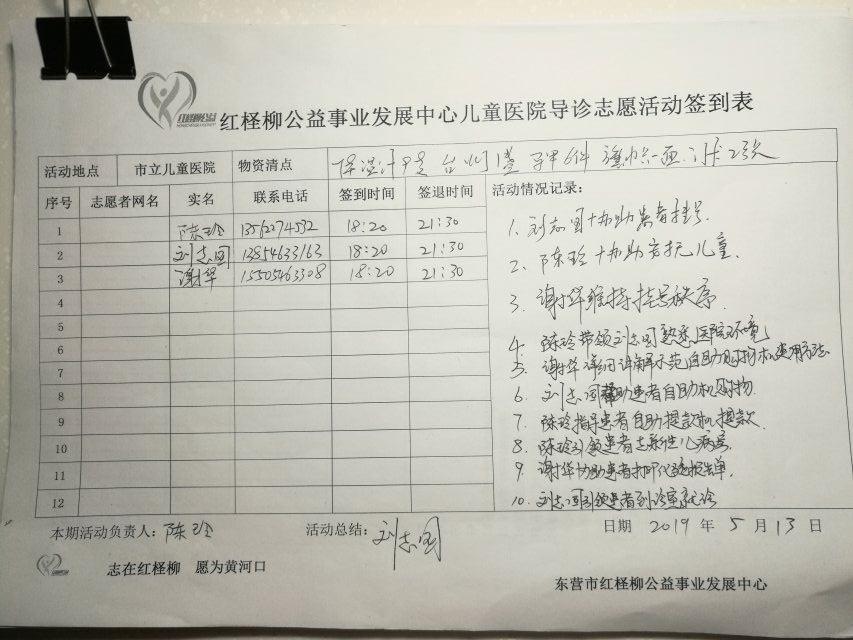 红柽柳公益事业发展中心儿童医院导诊志愿活动签到表
活动地点 市立儿童医院 物资清点 马甲6件
序号 志愿者网名 实名 联系电话 签到时间 签退时间 活动情况记录:
1 陈玲 18:20 21:30
2 刘志国 13854633163 18:20 21:30
3 谢华 15505463308 18:20 21:30
4
5
6
7
8
9
10
11
12
1. 刘志国协助患者挂号.
2. 陈玲协助安抚儿童.
3. 谢华维持挂号秩序
4. 陈玲带领刘志国熟悉医院环境
5. 谢华详细讲解示范自助购物机使用方法
6. 刘志国帮助患者自助机购物.
7 陈玲指导患者自助提款机提款.
8. 陈玲引领患者去新生儿病室
9 谢华协助患者打印化验报告单.
10. 刘志国引领患者到诊室就诊
本期活动负责人: 陈玲 活动总结: 刘志国 日期 2019 年 5 月 13 日
志在红柽柳 愿为黄河口
东营市红柽柳公益事业发展中心